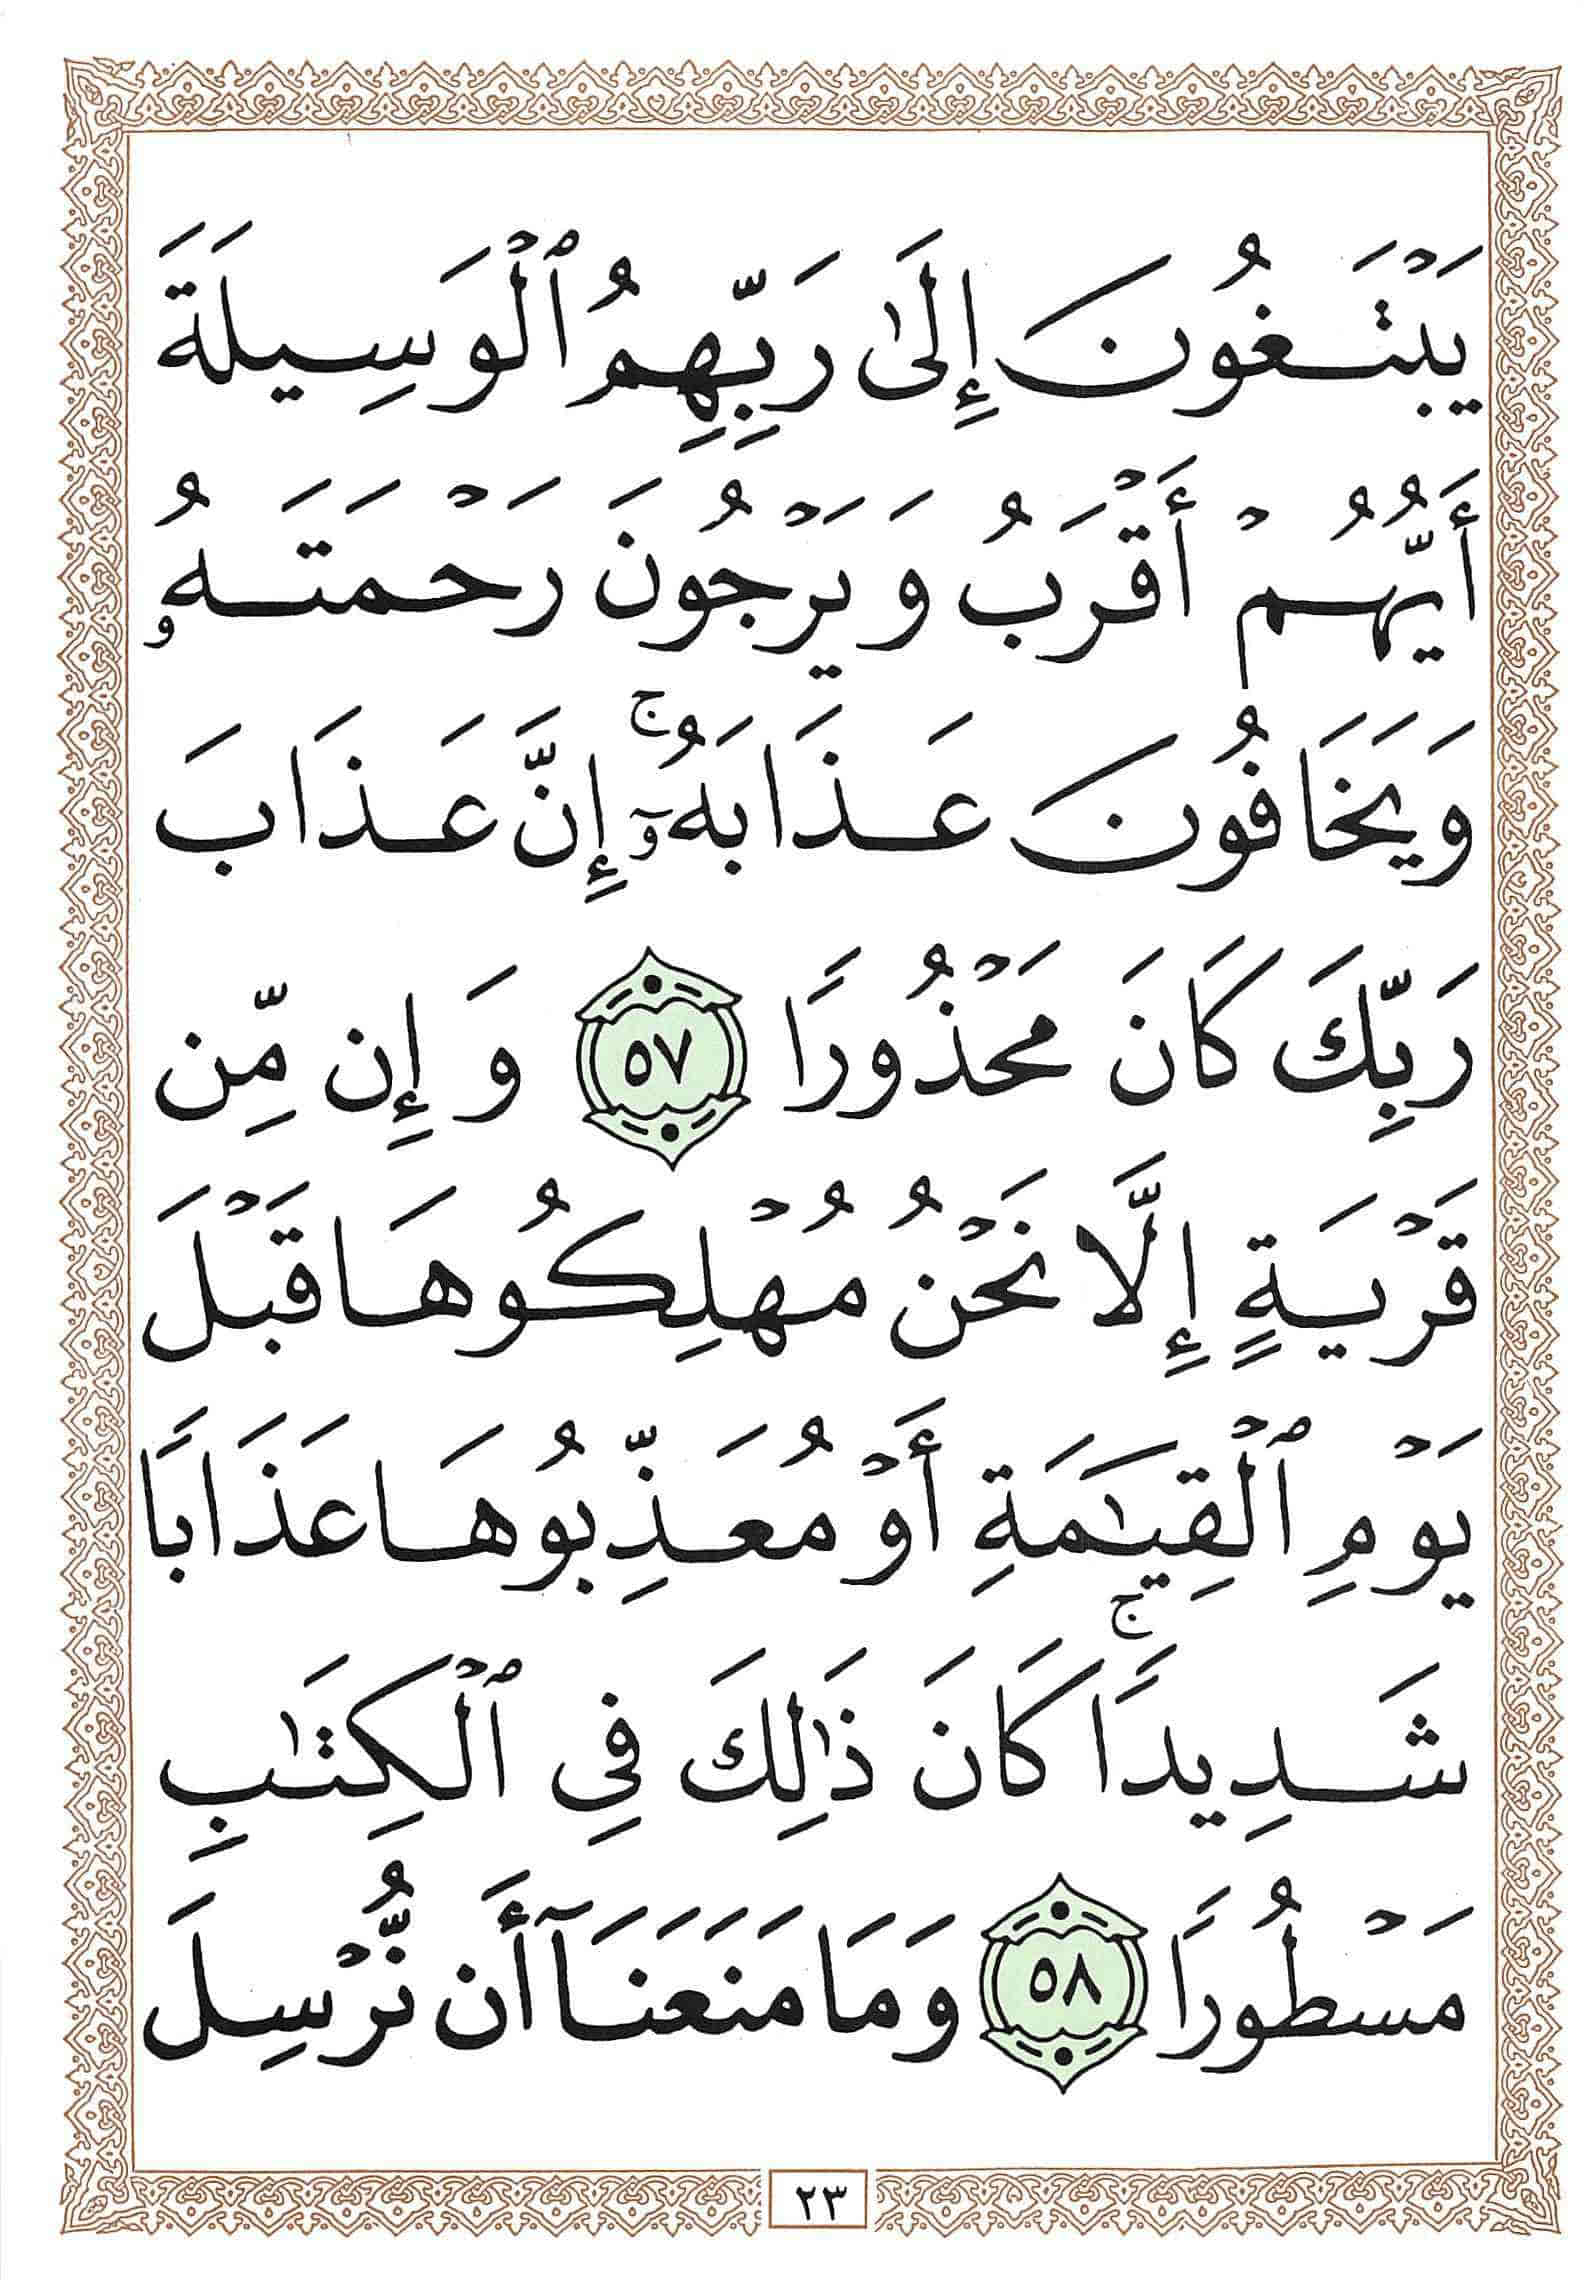 يَبْتَغُونَ إِلَىٰ رَبِّهِمُ ٱلْوَسِيلَةَ
أَيُّهُمْ أَقْرَبُ وَيَرْجُونَ رَحْمَتَهُۥ
وَيَخَافُونَ عَذَابَهُۥٓ ۚ إِنَّ عَذَابَ
رَبِّكَ كَانَ مَحْذُورًا ٥٧ وَإِن مِّن
قَرْيَةٍ إِلَّا نَحْنُ مُهْلِكُوهَا قَبْلَ
يَوْمِ ٱلْقِيَـٰمَةِ أَوْ مُعَذِّبُوهَا عَذَابًا
شَدِيدًا ۚ كَانَ ذَٰلِكَ فِى ٱلْكِتَـٰبِ
مَسْطُورًا ٥٨ وَمَا مَنَعَنَآ أَن نُّرْسِلَ
٢٣